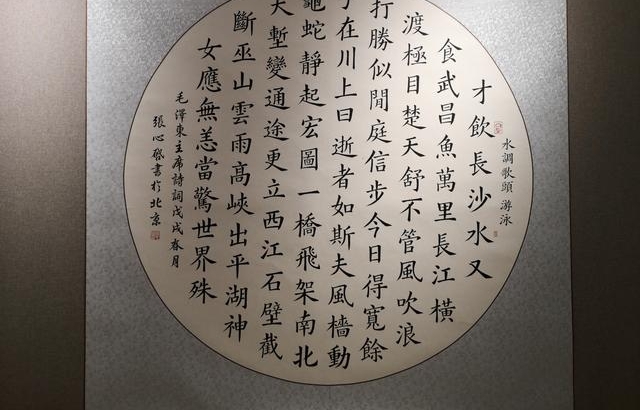 水調歌頭 游泳
才飲長沙水又
食武昌魚萬里長江橫
渡極目楚天舒不管風吹浪
打勝似閒庭信步今日得寬餘
子在川上曰逝者如斯夫風檣動
龜蛇靜起宏圖一橋飛架南北
天塹變通途更立西江石壁截
斷巫山雲雨高峽出平湖神
女應無恙當驚世界殊
毛澤東主席詩詞戊戌春月
張心啟書於北京